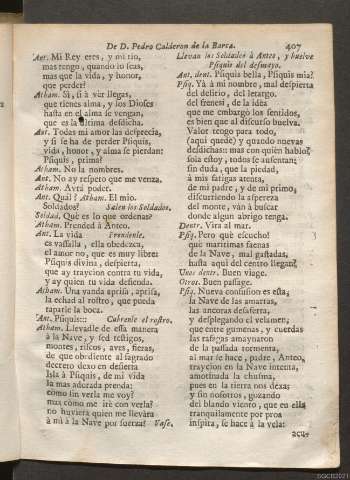 De D. Pedro Calderon de la Barca. 407
Ant. Mi Rey eres, y mi tio,
mas tengo, quando lo seas,
mas que la vida, y honor,
que perder?
Atham. Si, si à ver llegas,
que tienes alma, y los Dioses
hasta en el alma se vengan,
que es la ultima desdicha.
Ant. Todas mi amor las desprecia,
y si se ha de perder Psiquis,
vida, honor, y alma se pierdan:
Psiquis, prima?
Atham. No la nombres.
Ant. No ay respeto que me venza.
Atham. Avrà poder.
Ant. Qual? Atham. El mio.
Soldados? Salen los Soldados.
Soldad. Què es lo que ordenas?
Atham. Prended à Anteo.
Ant. La vida Prendenle.
es vassalla, ella obedezca,
el amor no, que es muy libre:
Psiquis divina, despierta,
que ay traycion contra tu vida,
y ay quien tu vida defienda.
Atham. Una vanda aprisa, aprisa,
la echad al rostro, que pueda
taparle la boca.
Ant. Psiquis::: Cubrenle el rostro.
Atham. Llevadle de essa manera
à la Nave, y sed testigos,
montes, riscos, aves, fieras,
de que obediente al sagrado
decreto dexo en desierta
Isla à Psiquis, de mi vida
la mas adorada prenda:
còmo sin verla me voy?
mas còmo me irè con verla?
no huviera quien me llevàra
à mi à la Nave por fuerza? Vase.
Llevan los Soldados à Anteo, y buelve
Psiquis del desmayo.
Ant. dent. Psiquis bella, Psiquis mia?
Psiq. Yà à mi nombre, mal despierta
del delirio, del letargo,
del frenesi, de la idèa
que me embargò los sentidos,
es bien que al discurso buelva.
Valor tengo para todo,
(aqui quede) y quando nuevas
desdichas: mas con quien hablo,
sola estoy, todos se ausentan;
sin duda, que la piedad,
à mis fatigas atenta,
de mi padre, y de mi primo,
discurriendo la aspereza
del monte, vàn à buscar
donde algun abrigo tenga.
Dentr. Vira al mar.
Psiq. Pero què escucho!
què maritimas faenas
de la Nave, mal gastadas,
hasta aqui del centro llegan?
Unos dentr. Buen viage.
Otros. Buen passage.
Psiq. Nueva confusion es esta;
la Nave de las amarras,
las ancoras desaferra,
y desplegando el velamen,
que entre gumenas, y cuerdas
las rafagas amaynaron
de la passada tormenta,
al mar se hace, padre, Anteo,
traycion en la Nave intenta,
amotinada la chusma,
pues en la tierra nos dexa;
y sin nosotros, gozando
del blando viento, que en ella
tranquilamente por proa
inspira, se hace à la vela:
acu-